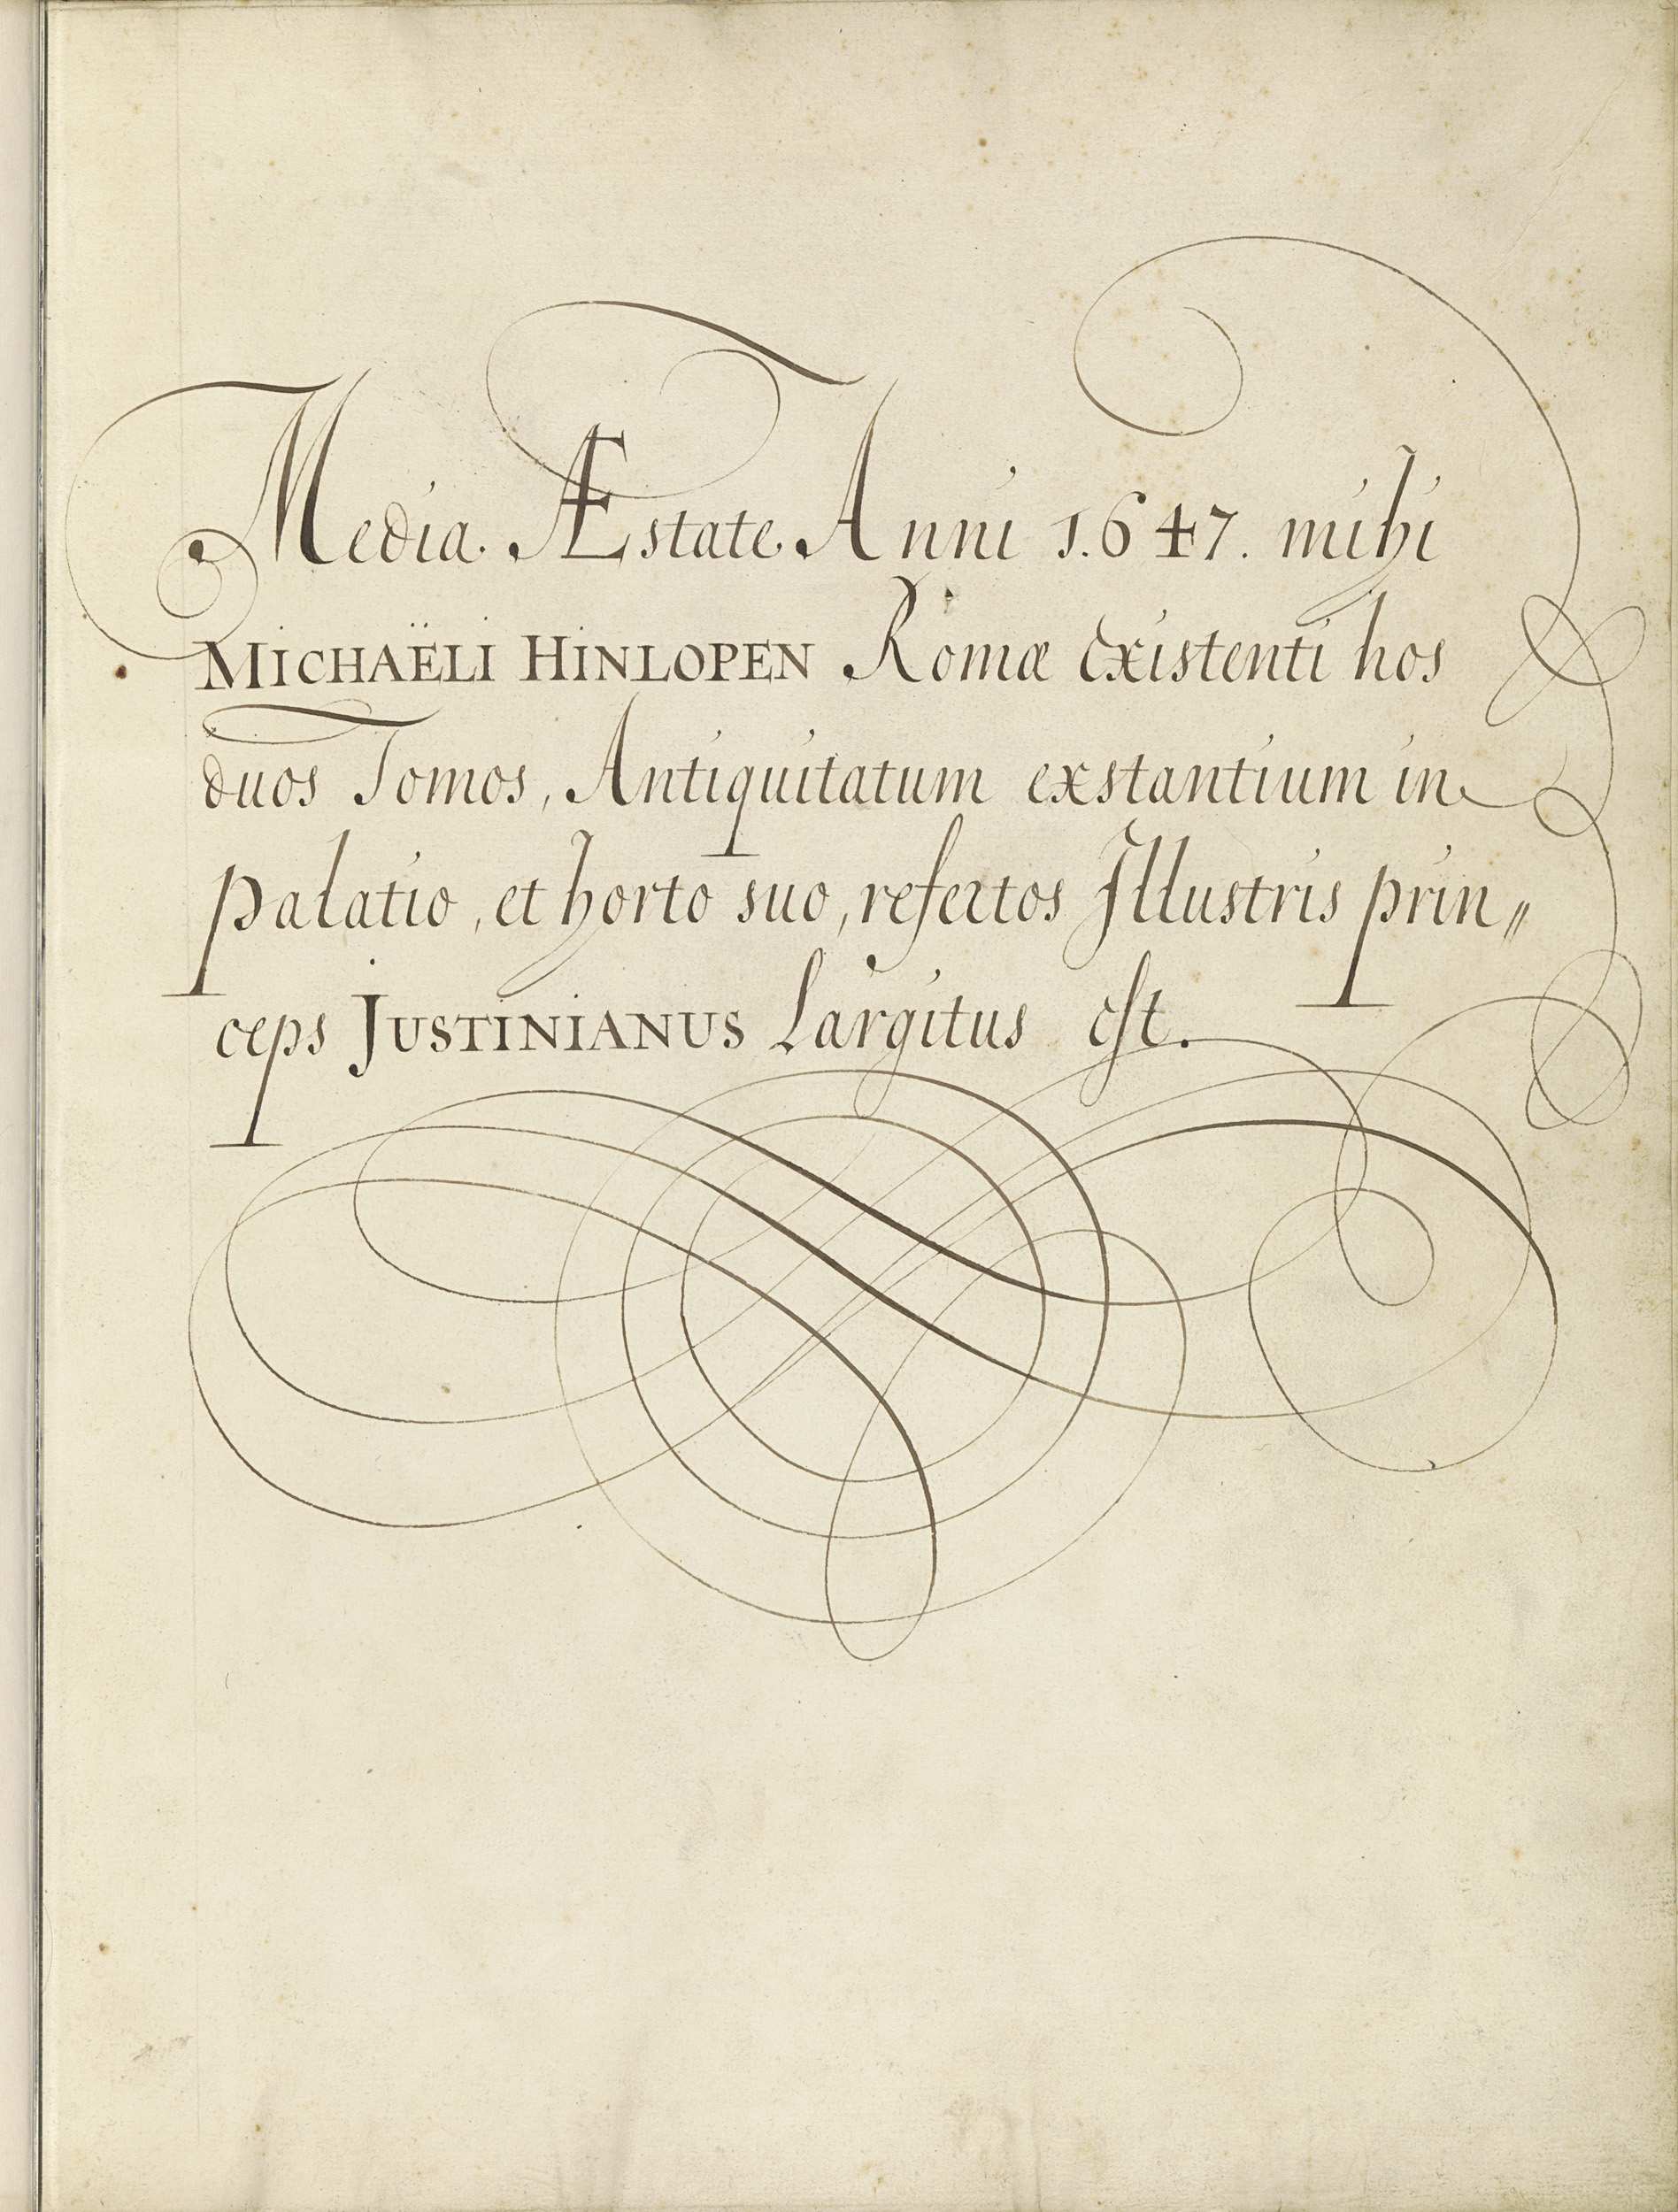 Media Æstate Anni 1647. mihi
MICHAËLI HINLOPEN Romæ existenti hos
duos Tomos, Antiquitatum exstantium in
palatio, et horto suo, refertos Illustris prin„
ceps JUSTINIANUS Largitus est.